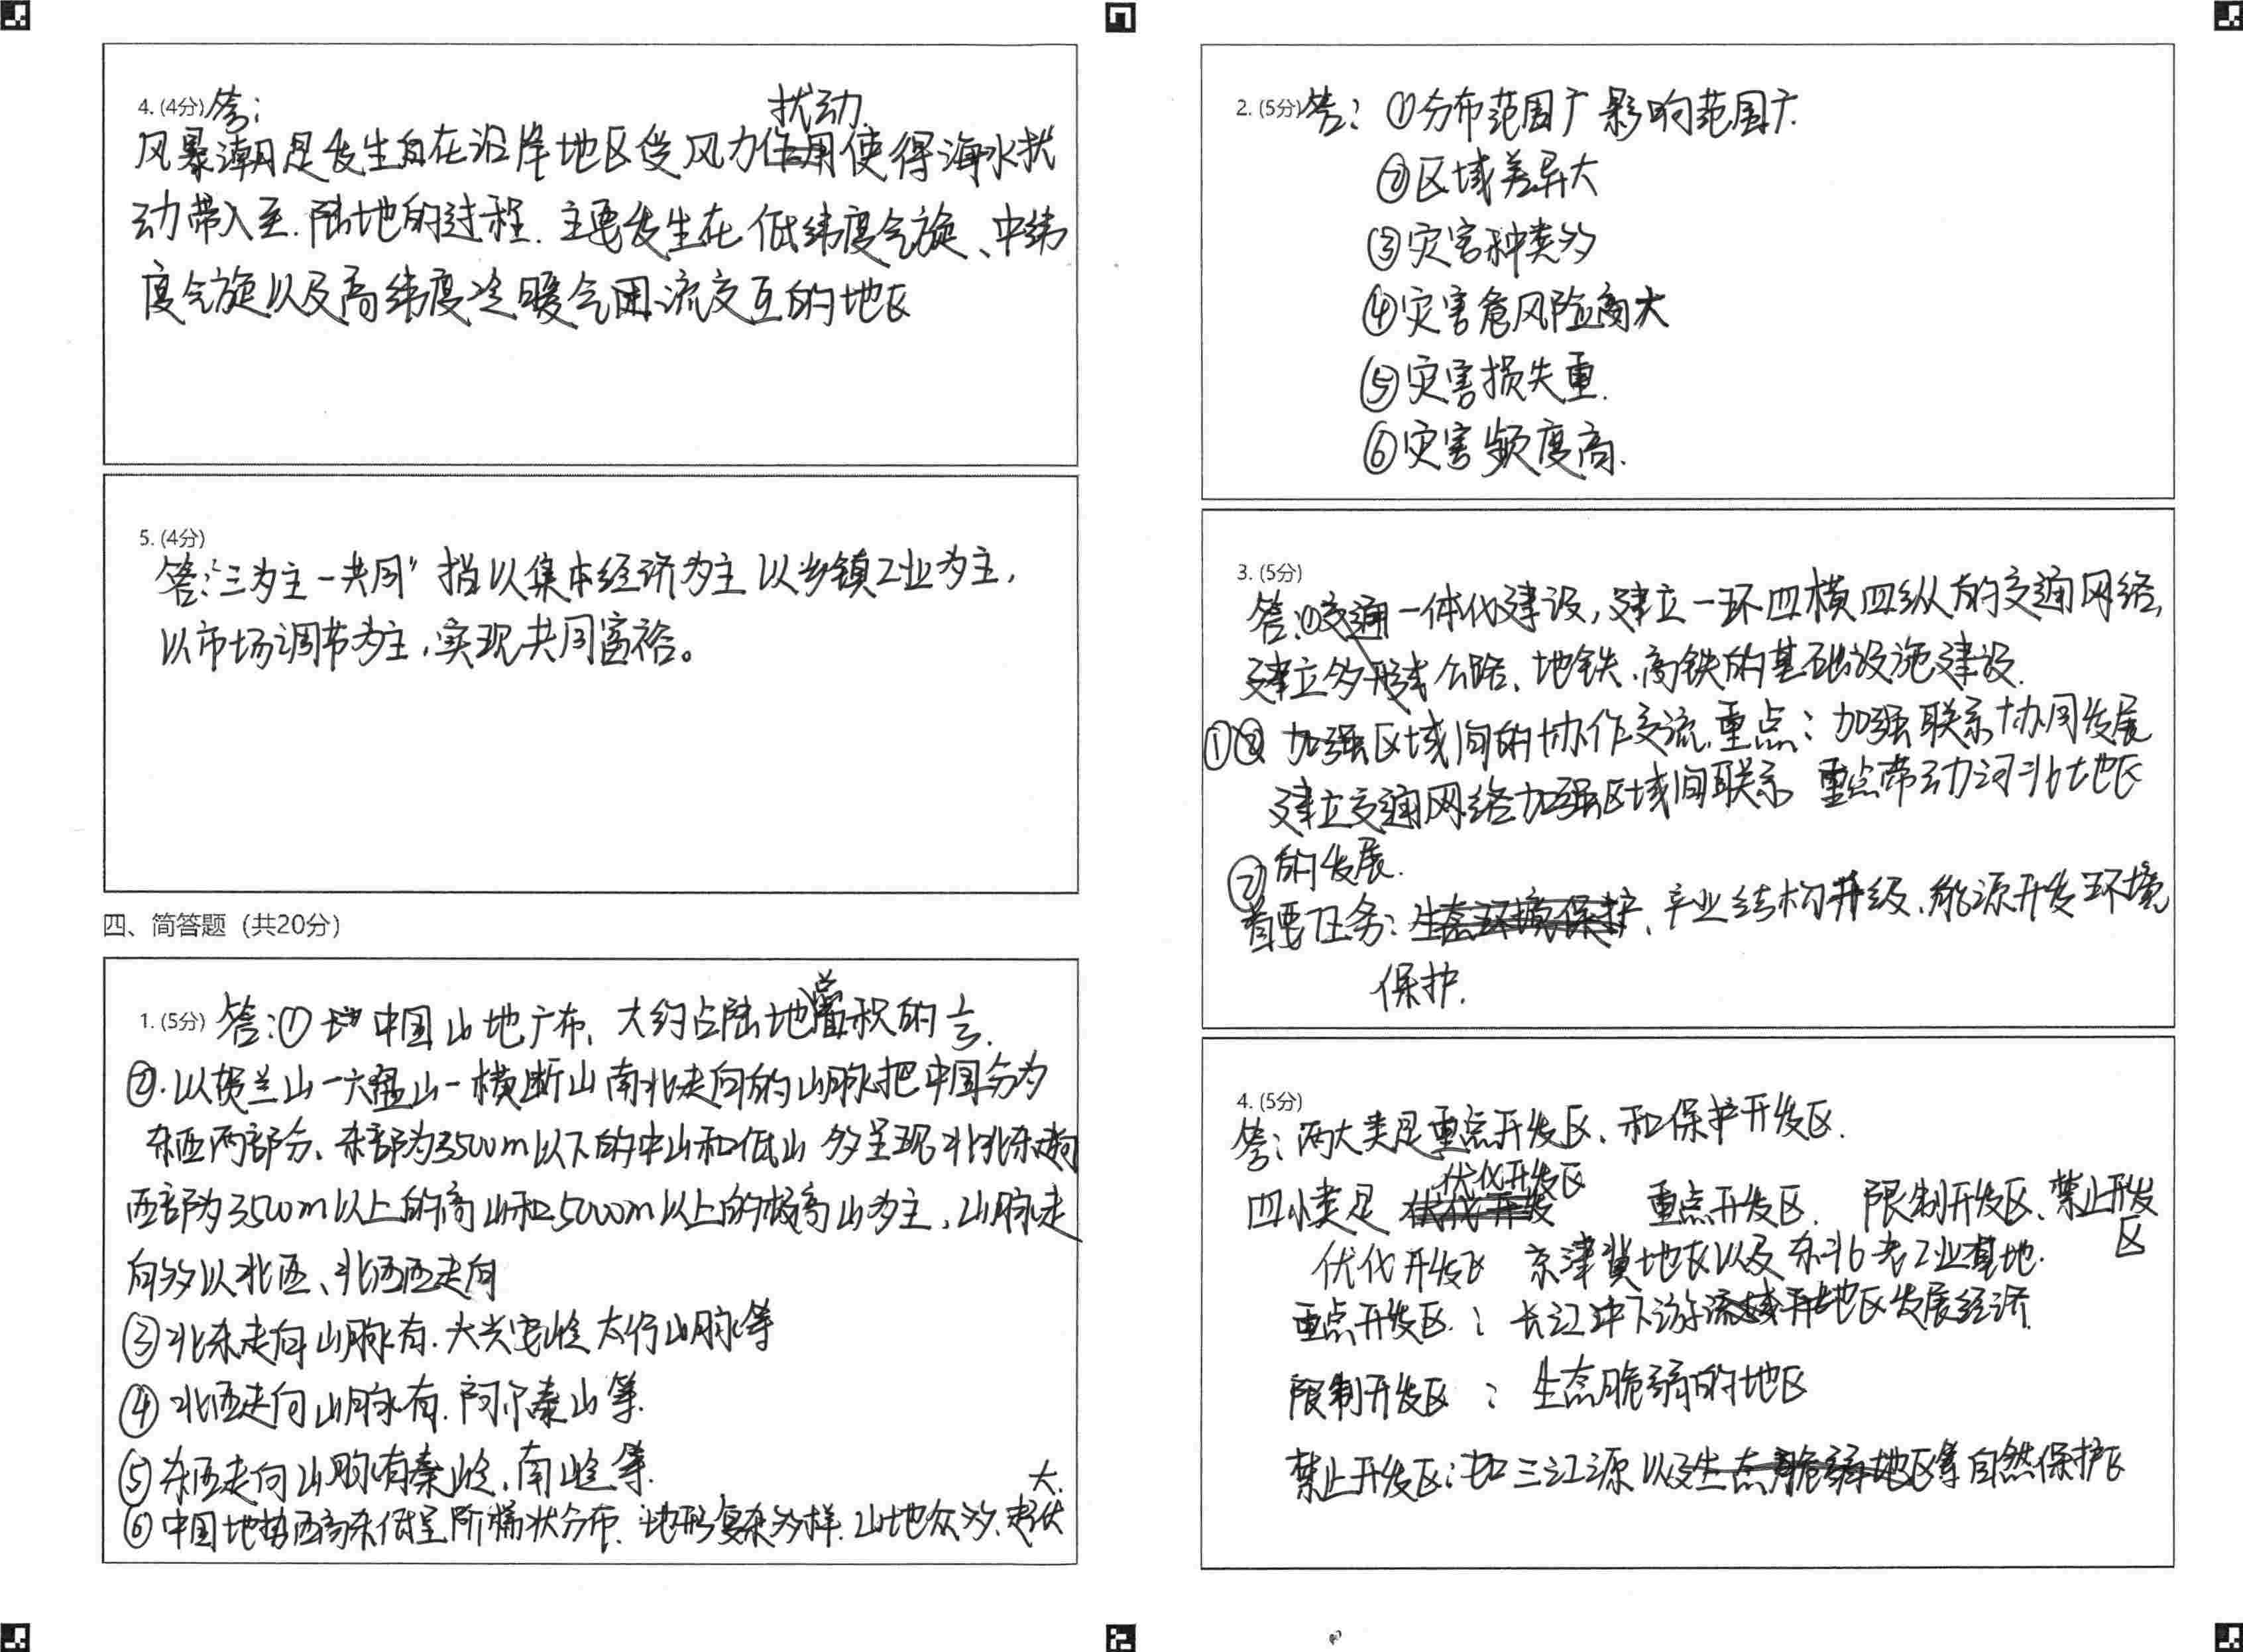 4. (4分) 答:
扰动
风暴潮是发生在沿岸地区受风力作用使得海水扰
动带入至.陆地的过程.主要发生在低纬度气旋、中纬
度气旋以及高纬度冷暖气团流交互的地区
5. (4分)
答:“三为主一共同”指以集体经济为主以乡镇工业为主,
以市场调节为主,实现共同富裕。
四、简答题（共20分）
1. (5分) 答:① 中国山地广布、大约占陆地总面积的⅓.
②.以贺兰山一六盘山一横断山南北走向的山脉把中国分为
东西两部分、东部为3500m以下的中山和低山 多呈现北北东走向
西部为3500m以上的高山和5000m以上的极高山为主,山脉走
向多以北西、北西西走向
③北东走向山脉有.大兴安岭太行山脉等
④北西走向山脉有.阿尔泰山等.
⑤东西走向山脉有秦岭、南岭等.
大.
⑥中国地势西高东低呈阶梯状分布.地形复杂多样.山地众多、起伏
2. (5分) 答: ①分布范围广影响范围广.
②区域差异大
③灾害种类多
④灾害危风险高大
⑤灾害损失重.
⑥灾害频度高.
3. (5分)
答:①交通一体化建设,建立一环四横四纵的交通网络,
建立多形式公路、地铁、高铁的基础设施建设.
①② 加强区域间的协作交流.重点:加强联系协同发展
建立交通网络加强区域间联系 重点带动河北地区
② 的发展.
首要任务:生态环境保护、产业结构升级、能源开发环境
保护.
4. (5分)
答:两大类是重点开发区、和保护开发区.
优化开发区
四小类是 优化开发 重点开发区. 限制开发区、禁止开发
区
优化开发区 京津冀地区以及东北老工业基地.
重点开发区:长江中下游流域地区发展经济.
限制开发区:生态脆弱的地区
禁止开发区:如三江源以及生态脆弱地区等自然保护区